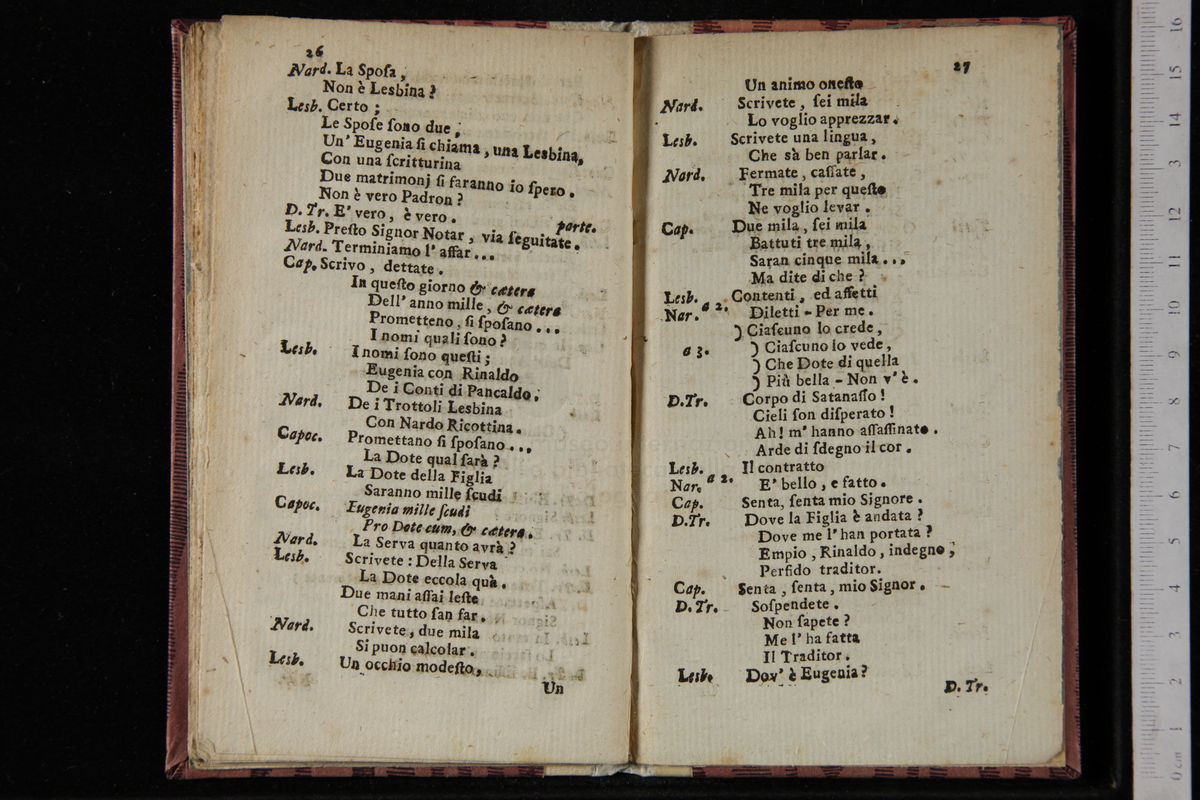 26
Nard. La Spoſa,
Non è Lesbina?
Lesb. Certo;
Le Spoſe ſono due;
Un' Eugenia ſi chiama, una Lesbina,
Con una ſcritturina
Due matrimonj ſi faranno io ſpero.
Non è vero Padron?
D. Tr. E' vero, è vero. parte.
Lesb. Preſto Signor Notar, via ſeguitate.
Nard. Terminiamo l' affar...
Cap. Scrivo, dettate.
In queſto giorno & cætera
Dell' anno mille, & cætera
Prometteno, ſi ſpoſano...
I nomi quali ſono?
Lesb. I nomi ſono queſti;
Eugenia con Rinaldo
De i Conti di Pancaldo;
Nard. De i Trottoli Lesbina
Con Nardo Ricottina.
Capoc. Promettano ſi ſpoſano...
La Dote qual ſarà?
Lesb. La Dote della Figlia
Saranno mille ſcudi
Capoc. Eugenia mille ſcudi
Pro Dote cum, & cætera.
Nard. La Serva quanto avrà?
Lesb. Scrivete: Della Serva
La Dote eccola quà.
Due mani aſſai leſte
Che tutto ſan far.
Nard. Scrivete, due mila
Si puon calcolar.
Lesb. Un occhio modeſto,
Un
27
Un animo oneſto
Nard. Scrivete, ſei mila
Lo voglio apprezzar.
Lesb. Scrivete una lingua,
Che sà ben parlar.
Nard. Fermate, caſſate,
Tre mila per queſto
Ne voglio levar.
Cap. Due mila, ſei mila
Battuti tre mila,
Saran cinque mila...
Ma dite di che?
Lesb. Contenti, ed affetti
Nar. a 2. Diletti - Per me.
) Ciaſcuno lo crede,
a 3. ) Ciaſcuno lo vede,
) Che Dote di quella
) Più bella - Non v' è.
D.Tr. Corpo di Satanaſſo!
Cieli ſon diſperato!
Ah! m' hanno aſſaſſinato.
Arde di ſdegno il cor.
Lesb. Il contratto
Nar. a 2. E' bello, e fatto.
Cap. Senta, ſenta mio Signore.
D.Tr. Dove la Figlia è andata?
Dove me l' han portata?
Empio, Rinaldo, indegno;
Perfido traditor.
Cap. Senta, ſenta, mio Signor.
D. Tr. Soſpendete.
Non ſapete?
Me l' ha fatta
Il Traditor.
Lesb. Dov' è Eugenia?
D. Tr.
0 cm 1 2 3 4 5 6 7 8 9 10 11 12 13 14 15 16